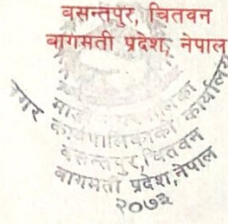 वसन्तपुर, चितवन
बागमती प्रदेश, नेपाल
नगर कार्यपालिकाको कार्यालय
वसन्तपुर, चितवन
बागमती प्रदेश, नेपाल
२०७३